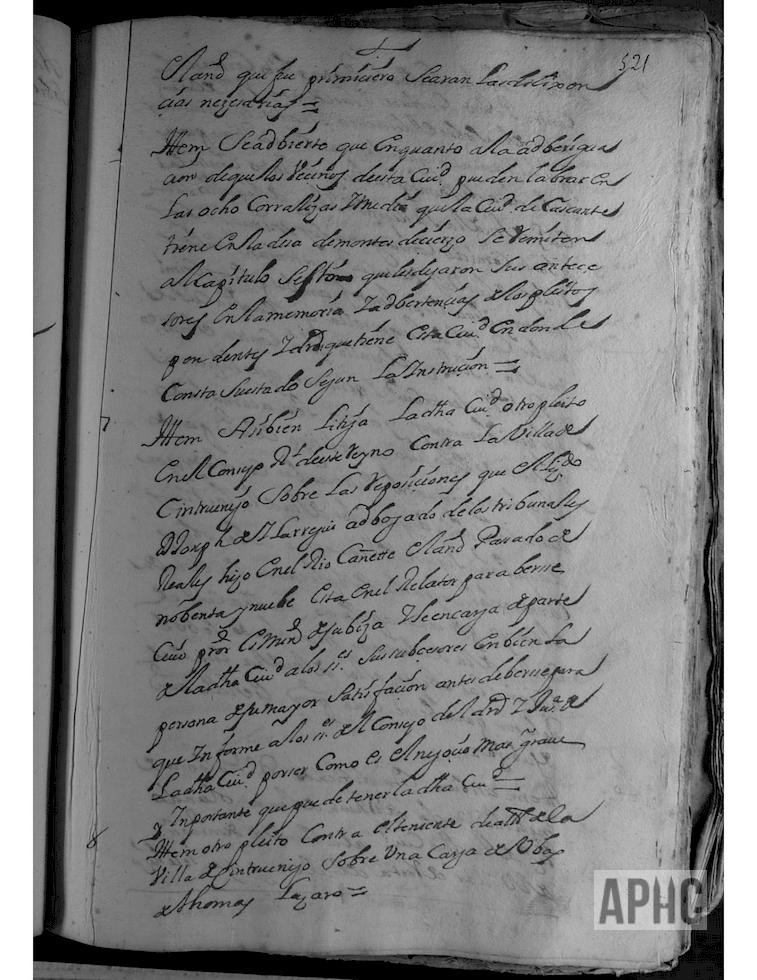 521
qui fue primiciero searan las
cias nezesarias =
Ittem Se adbierte que en quanto a la adberigua
cion de que los Vecinos de esta Ciud pueden labrar En
Las ocho Corralizas Y media que la Ciud de Cascante
tiene En la desa de montes de cierzo Se Remiten
al Capitulo que les dejaron sus antece
sores En la memoria Y adbertencias de los pleitos
pendentes que tiene Esta Ciud En donde
Consta su estado Segun La Instrucion =
7
Ittem Asibien Litija La dha Ciud otro pleito
En el Consejo Rl de este Reyno Contra La Villa de
Cintruenijo Sobre Las Reposiciones que El
Joseph de Larrequi adbogado de los tribunales
Reales hizo En el Rio Cañette El año Passado de
nobenta y nuebe Esta En el Relator para berse
Cuio pror Es de Subiza Y se encarga de parte
de la dha Ciud a los ss.es Sus subcesores Embien La
persona de su mayor Satisfacion antes de berse para
que Informe a los ss.es del Consejo del
La dha Ciud por ser Como Es El negocio mas graue
y Inportante que puede tener la dha Ciud =
8
Ittem otro pleito Contra el teniente de alle de la
Villa de Cintruenijo Sobre Una Carga de Ubas
de Thomas Lazaro =
APHC